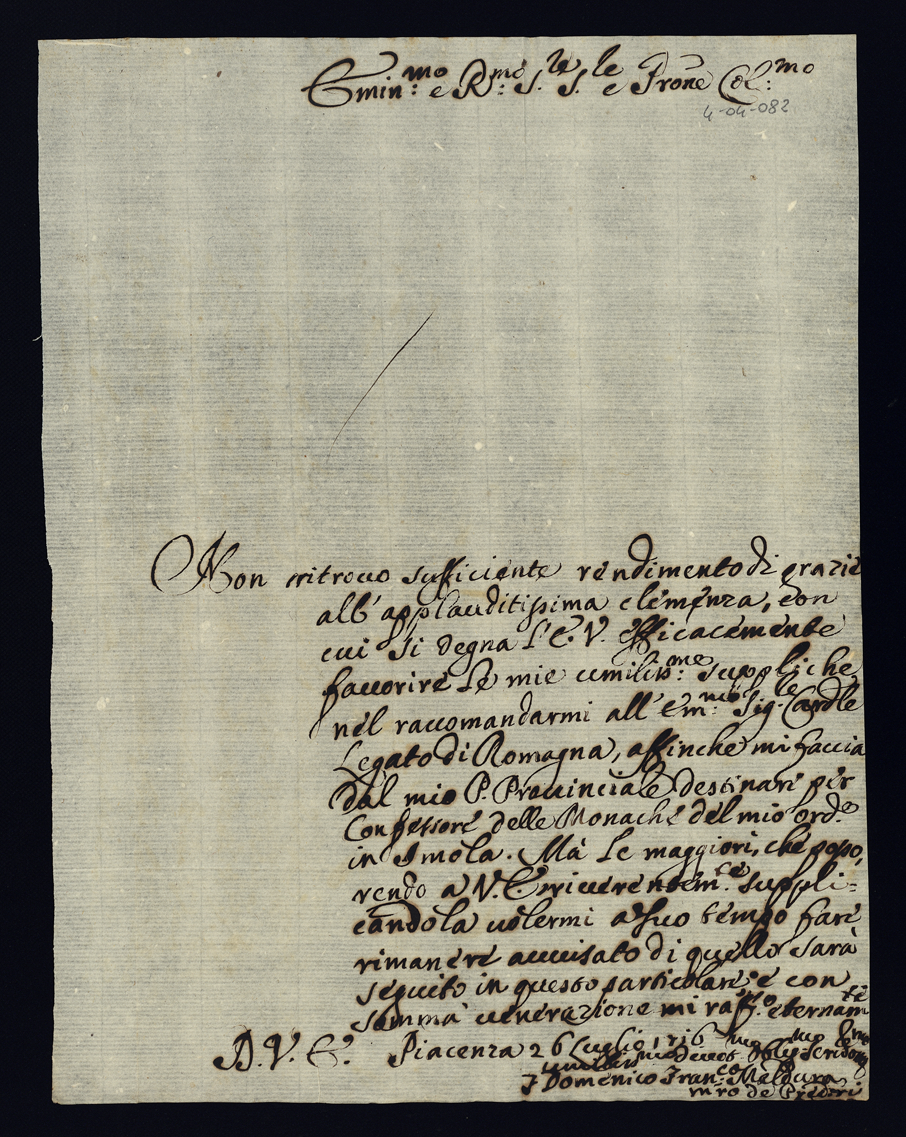 Emin:mo e R:mo S.re S.le e Prone Col:mo
4-04-082
Non ritrovo sufficiente rendimento di grazie
all'applauditissima clemenza, con
cui si degna l'E.V. efficacemente
favorire le mie umiliss:me suppliche,
nel raccomandarmi all'Em:mo Sig.le Cardle
Legato di Romagna, affinche mi faccia
dal mio P. Provinciale destinare per
Confessore delle Monache del mio ord.e
in Imola. Mà le maggiori, che posso,
rendo a V. E. riverentem.te suppli-
candola volermi a suo tempo fare
rimanere avvisato di quello sarà
seguito in questo particolare e con
somma venerazione mi raff.o eternam.te
D. V. E. Piacenza 26 Luglio 1716
umiliss.mo devot.mo Oblig.
F Domenico Fran.co Maldura